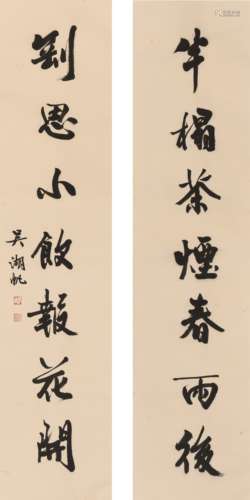 半榻茶煙春雨後
劃思小飲報花開
吳湖帆